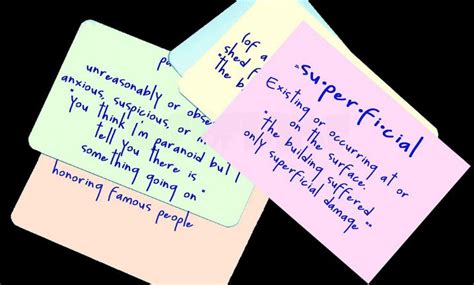 pa
unreasonably or obse
anxious, suspicious, or m
"You think I'm paranoid but I
tell you there is
something going on"
honoring famous people
(of a
shed f
"the b
"su•per•fi•cial
Existing or occurring at or
on the surface.
"the building suffered
only superficial damage"